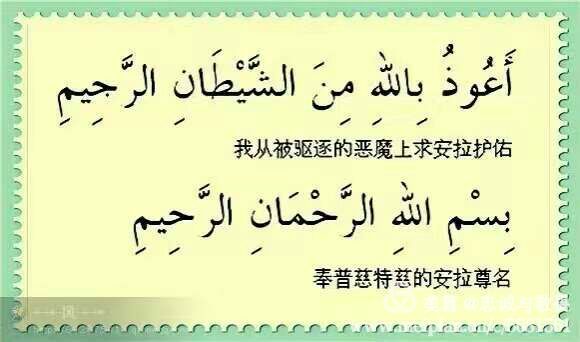 أَعُوذُ بِاللهِ مِنَ الشَّيْطَانِ الرَّجِيمِ
我从被驱逐的恶魔上求安拉护佑
بِسْمِ اللهِ الرَّحْمَانِ الرَّحِيمِ
奉普慈特慈的安拉尊名